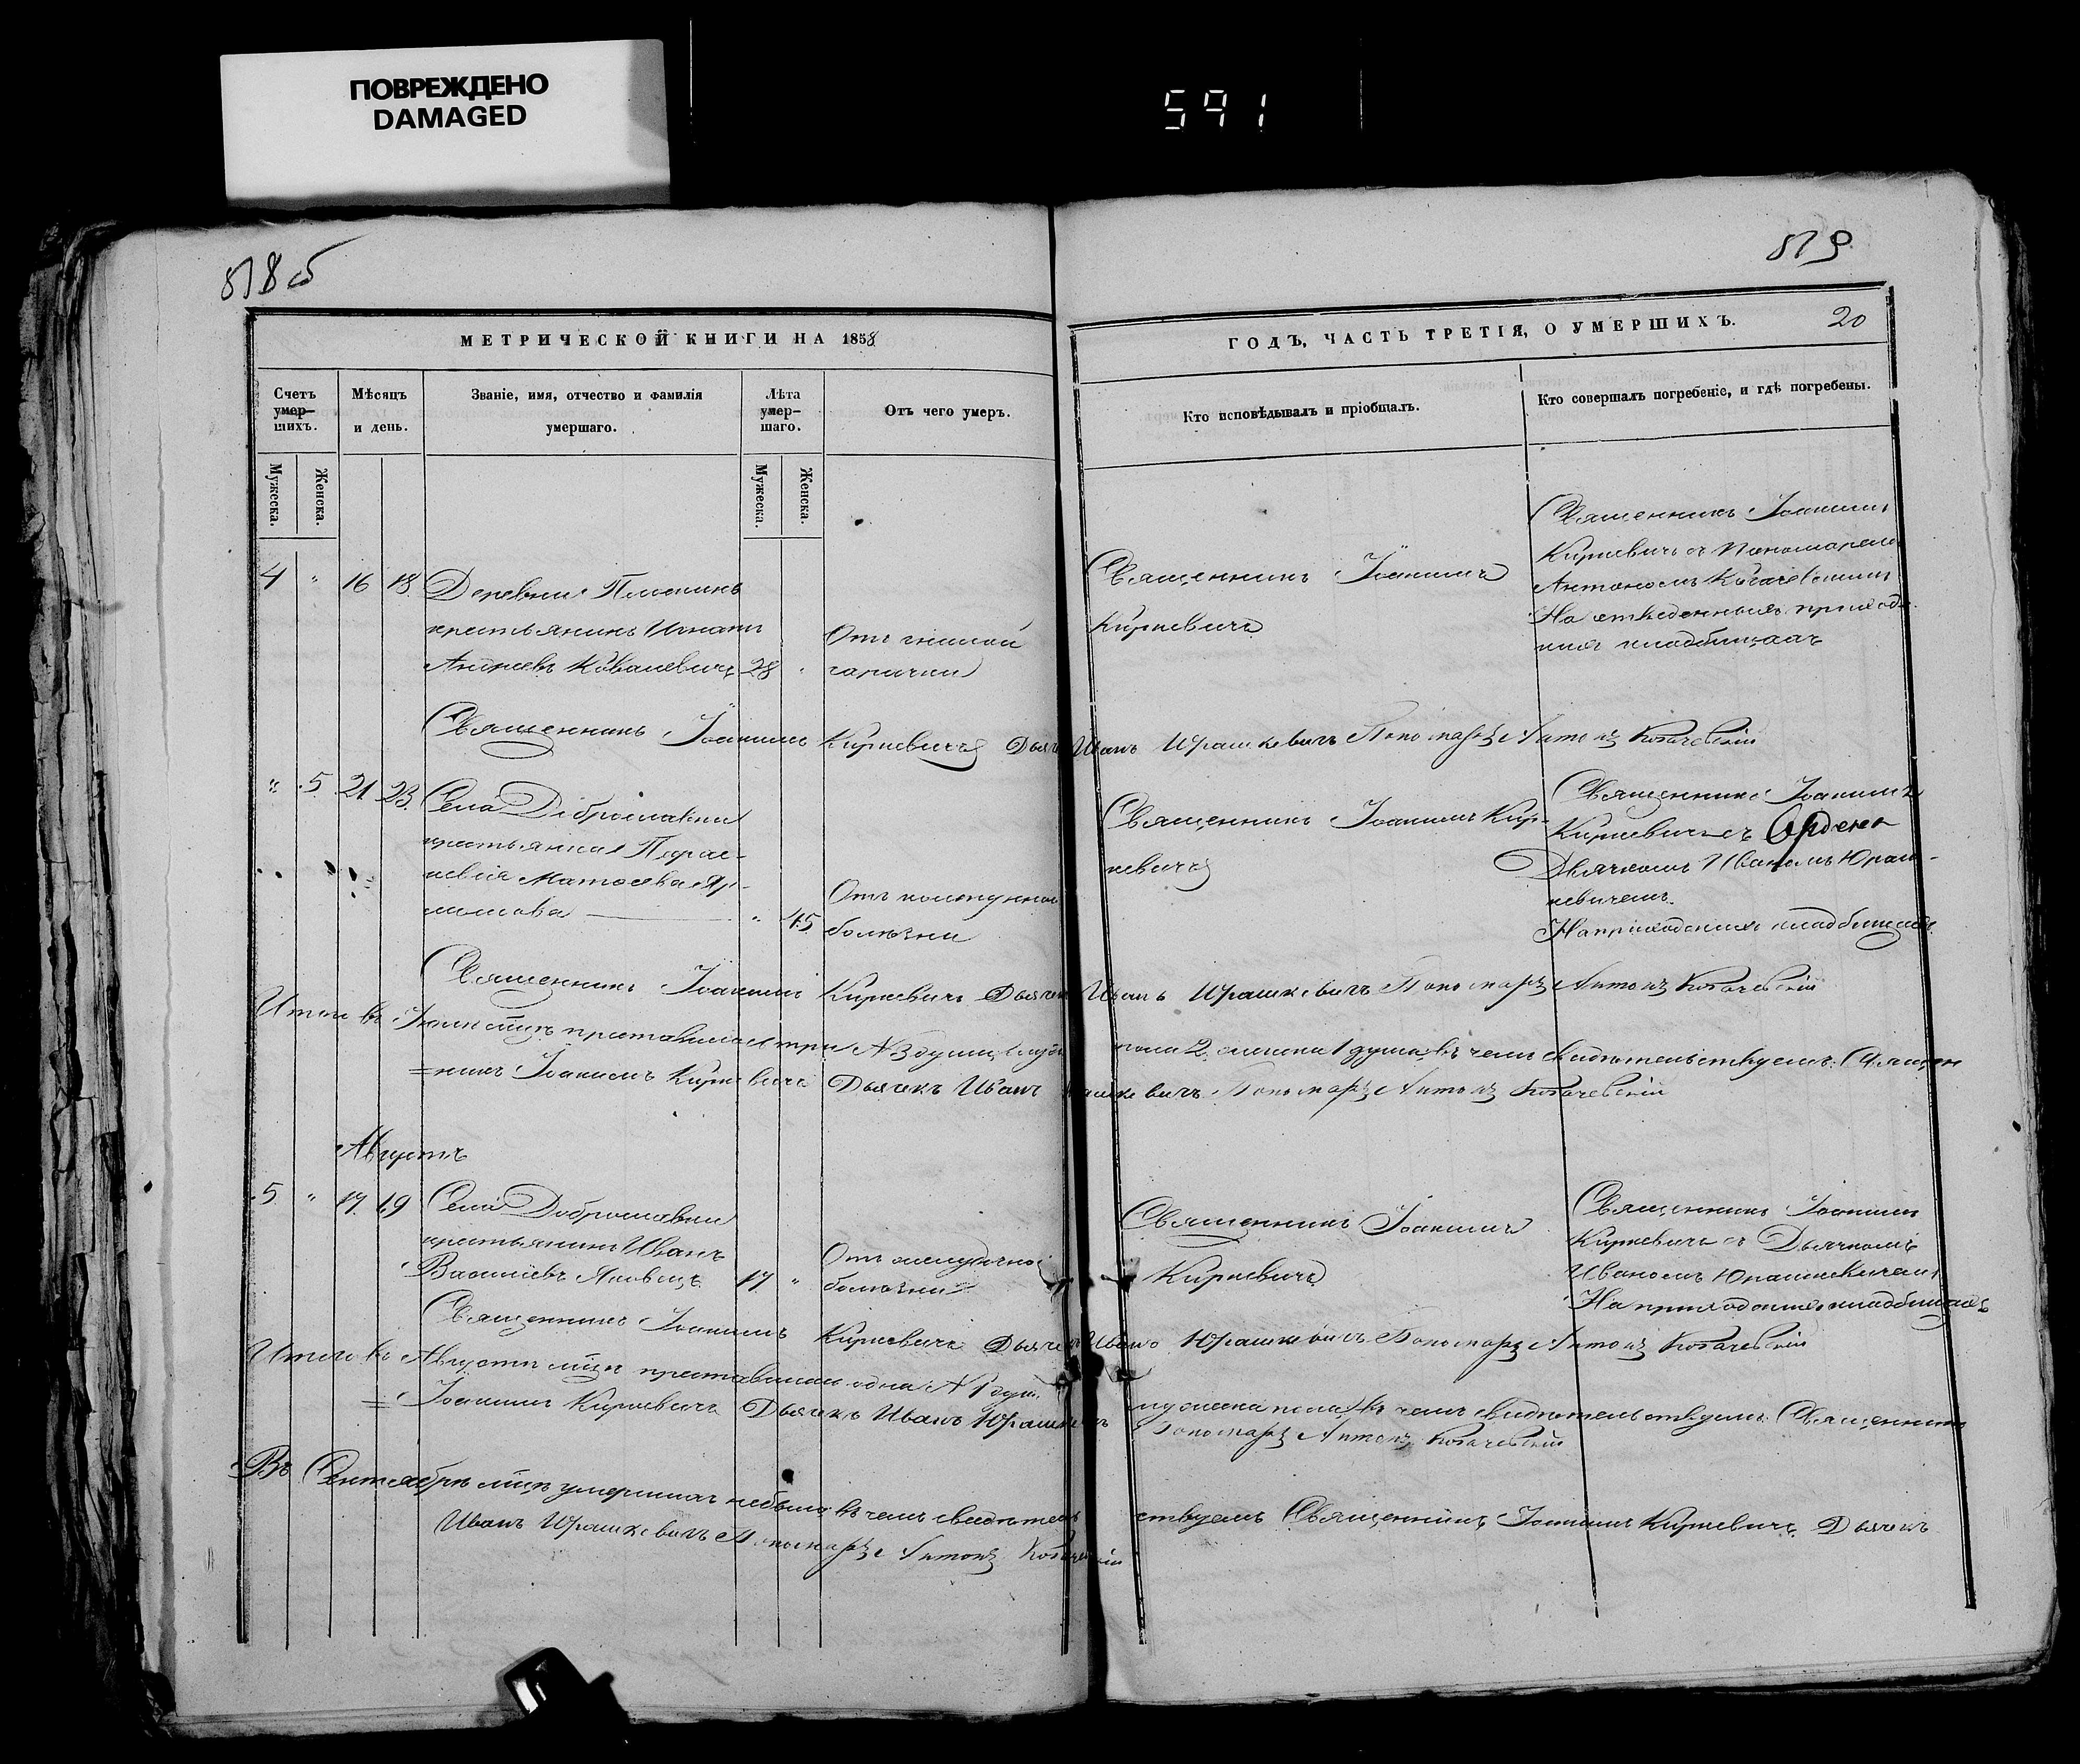 ПОВРЕЖДЕНО
DAMAGED
591
818 об
819
МЕТРИЧЕСКОЙ КНИГИ НА 1858
ГОДЪ, ЧАСТЬ ТРЕТІЯ, О УМЕРШИХЪ.
20
Счетъ умер-шихъ.
Мѣсяцъ и день.
Званіе, имя, отчество и фамилія умершаго.
Лѣта умер-шаго.
Отъ чего умеръ.
Кто исповѣдывалъ и пріобщалъ.
Кто совершалъ погребеніе, и гдѣ погребены.
Мужеска.
Женска.
Мужеска.
Женска.
4 " 16 18 Деревни
крестьянинъ Игнатій
Андреевъ Ковалевичъ 28 "
Отъ гнилой
горячки
Священникъ Іоакимъ
Кирневичъ
Священникъ Іоакимъ
Кирневичъ съ Пономаремъ
Антономъ Котачевскимъ
На отведенныхъ приход-
кихъ кладбищахъ
Священникъ Іоакимъ Кирневичъ Дьячекъ Иванъ Юрашкевичъ Пономарь Антонъ Котачевскій
" 5 21 23 Села Доброславки
крестьянка Парас-
кевія Матѳеева Яр-
" 45
Отъ
болѣзни
Священникъ Іоакимъ Кир-
невичъ
Священникъ Іоакимъ
Кирневичъ съ
Дьячкомъ Иваномъ Юраш-
кевичемъ
На приходскихъ кладбищахъ
Священникъ Іоакимъ Кирневичъ Дьячекъ Иванъ Юрашкевичъ Пономарь Антонъ Котачевскій
Итого въ мцѣ преставилося три № 3 души, пола 2, женска 1 душа, въ чемъ свидѣтельствуемъ: Священ
=никъ Іоакимъ Кирневичъ Дьячекъ Иванъ Юрашкевичъ Пономарь Антонъ Котачевскій
Августъ
5 " 17 19 Села Доброславки
крестьянинъ Иванъ
Василіевъ Яковецъ 17 "
Отъ желудочной
болѣзни
Священникъ Іоакимъ
Кирневичъ
Священникъ Іоакимъ
Кирневичъ съ Дьячкомъ
Иваномъ Юрашкевичемъ
На приходскихъ кладбищахъ
Священникъ Іоакимъ Кирневичъ Дьячекъ Иванъ Юрашкевичъ Пономарь Антонъ Котачевскій
Итого въ Августѣ мцѣ преставилась одна № 1 душа мужеска пола, въ чемъ свидѣтельствуемъ: Священникъ
= Іоакимъ Кирневичъ Дьячекъ Иванъ Юрашкевичъ Пономарь Антонъ Котачевскій
Въ Сентябрѣ мцѣ умершихъ небыло, въ чемъ свидѣтельствуемъ Священникъ Іоакимъ Кирневичъ Дьячекъ
Иванъ Юрашкевичъ Пономарь Антонъ Котачевскій